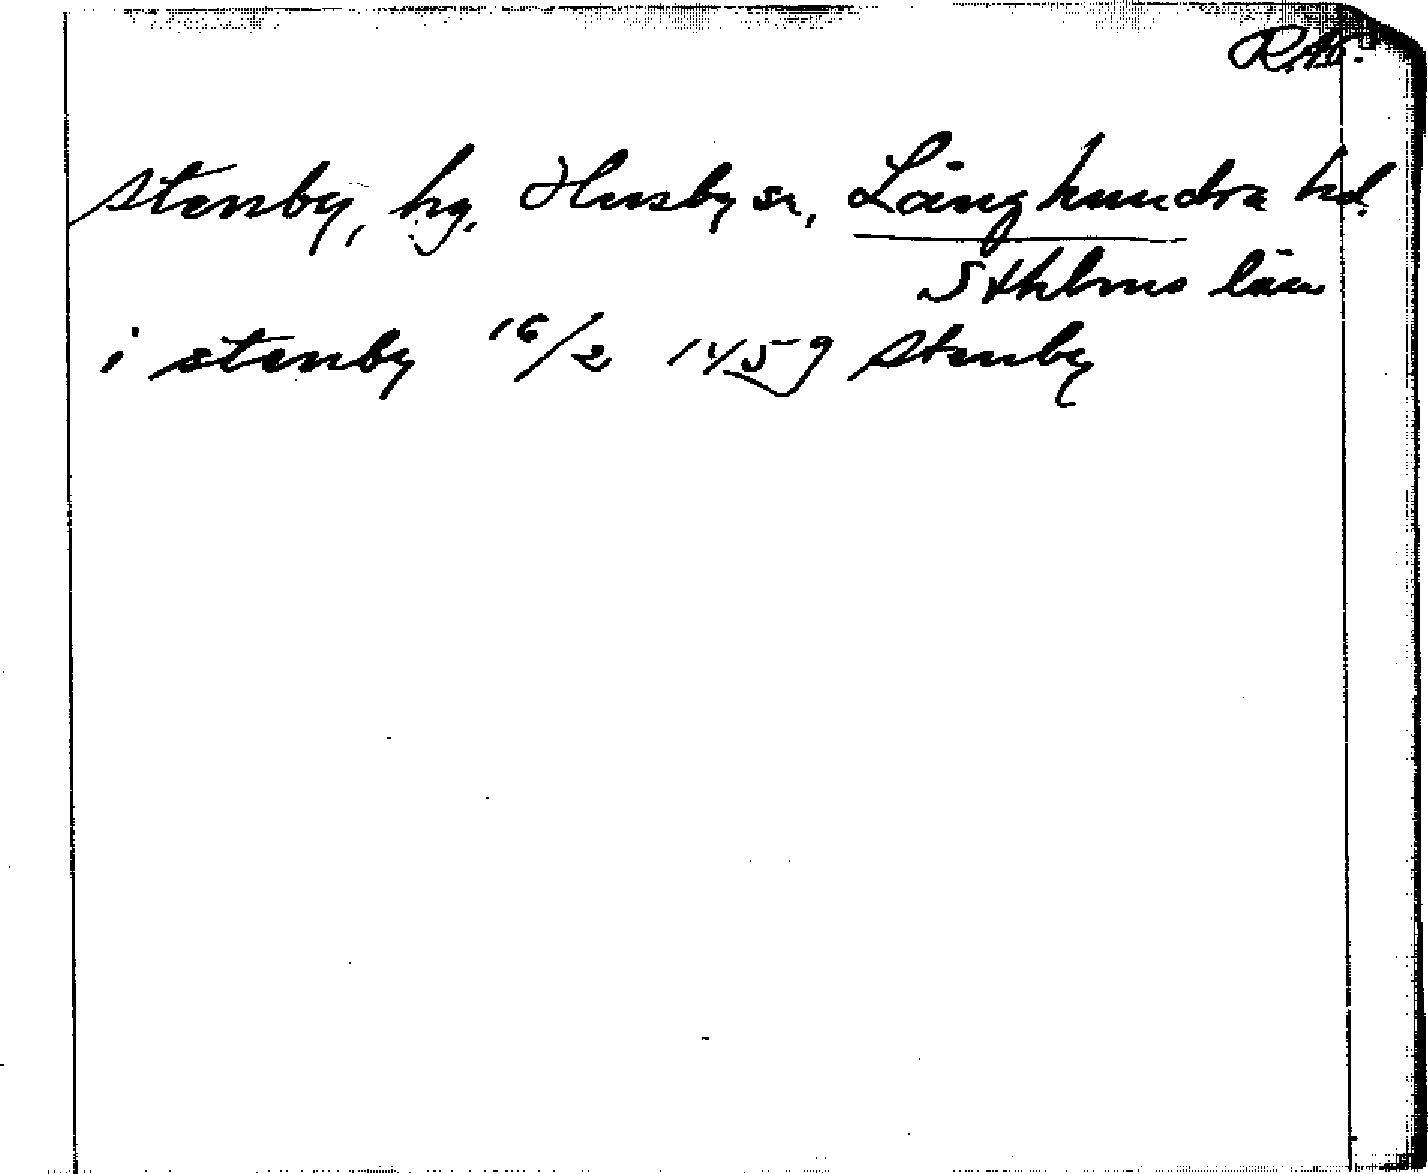 R.A.
Stenby, hg, Husby sn, Långhundra hd.
Sthlms län
i stenby 16/2 1459 Stenby